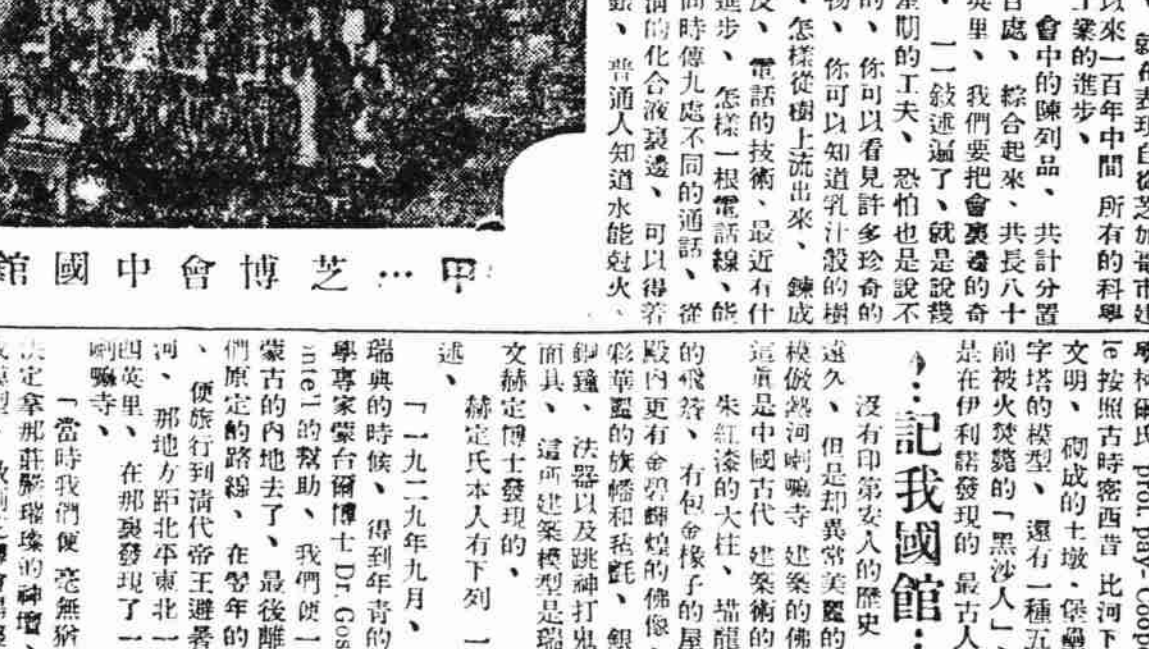 就在表現自從芝加哥市建
以來一百年中間 所有的科學
工業的進步、
會中的陳列品、共計分置
百處、綜合起來、共長八十
英里、我們要把會裏邊的奇
、一一敍述遍了、就是說幾
星期的工夫、恐怕也是說不
的、你可以看見許多珍奇的
物、你可以知道乳汁般的樹
、怎樣從樹上流出來、鍊成
皮、電話的技術、最近有什
進步、怎樣一根電話線、能
同時傳九處不同的通話、從
的化合液裏邊、可以得着
銀、普通人知道水能尅火、
甲…芝博會中國館
學柯爾氏 prof. pay-Coope
le 按照古時密西昔 比河下
文明、砌成的土墩、堡壘
字塔的模型、還有一種五
前被火焚斃的「黑沙人」、
是在伊利諾發現的 最古人
…記我國館…
沒有印第安人的歷史
遠久、但是却異常美麗的
模倣熱河喇嘛寺 建築的佛
這眞是中國古代 建築術的
朱紅漆的大柱、描龍
的飛簷、有包金椽子的屋
殿內更有金碧輝煌的佛像、
彩華麗的旗幡和毡氈、銀
銅鐘、法器以及跳神打鬼
面具、這所建築模型是瑞
文赫定博士發現的、
赫定氏本人有下列 一
述、
「一九二九年九月、
瑞典的時候、得到年青的
學專家蒙台爾博士 Dr. Gos
ntell 的幫助、我們便一
蒙古的內地去了、最後離
們原定的路線、在翌年的
、便旅行到清代帝王避暑
河、那地方距北平東北一
四英里、在那裏發現了一
喇嘛寺、
「當時我們便 毫無猶
決定拿那莊嚴璀璨的神壇